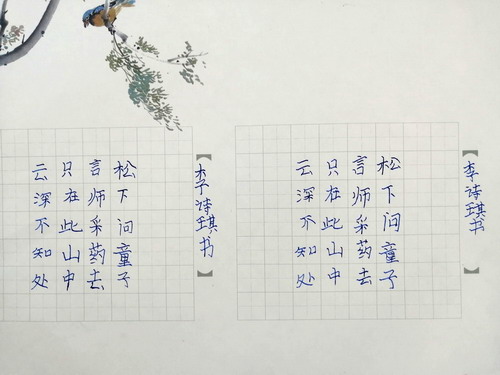 松下问童子
言师采药去
只在此山中
云深不知处
【李诗琪书】
松下问童子
言师采药去
只在此山中
云深不知处
【李诗琪书】